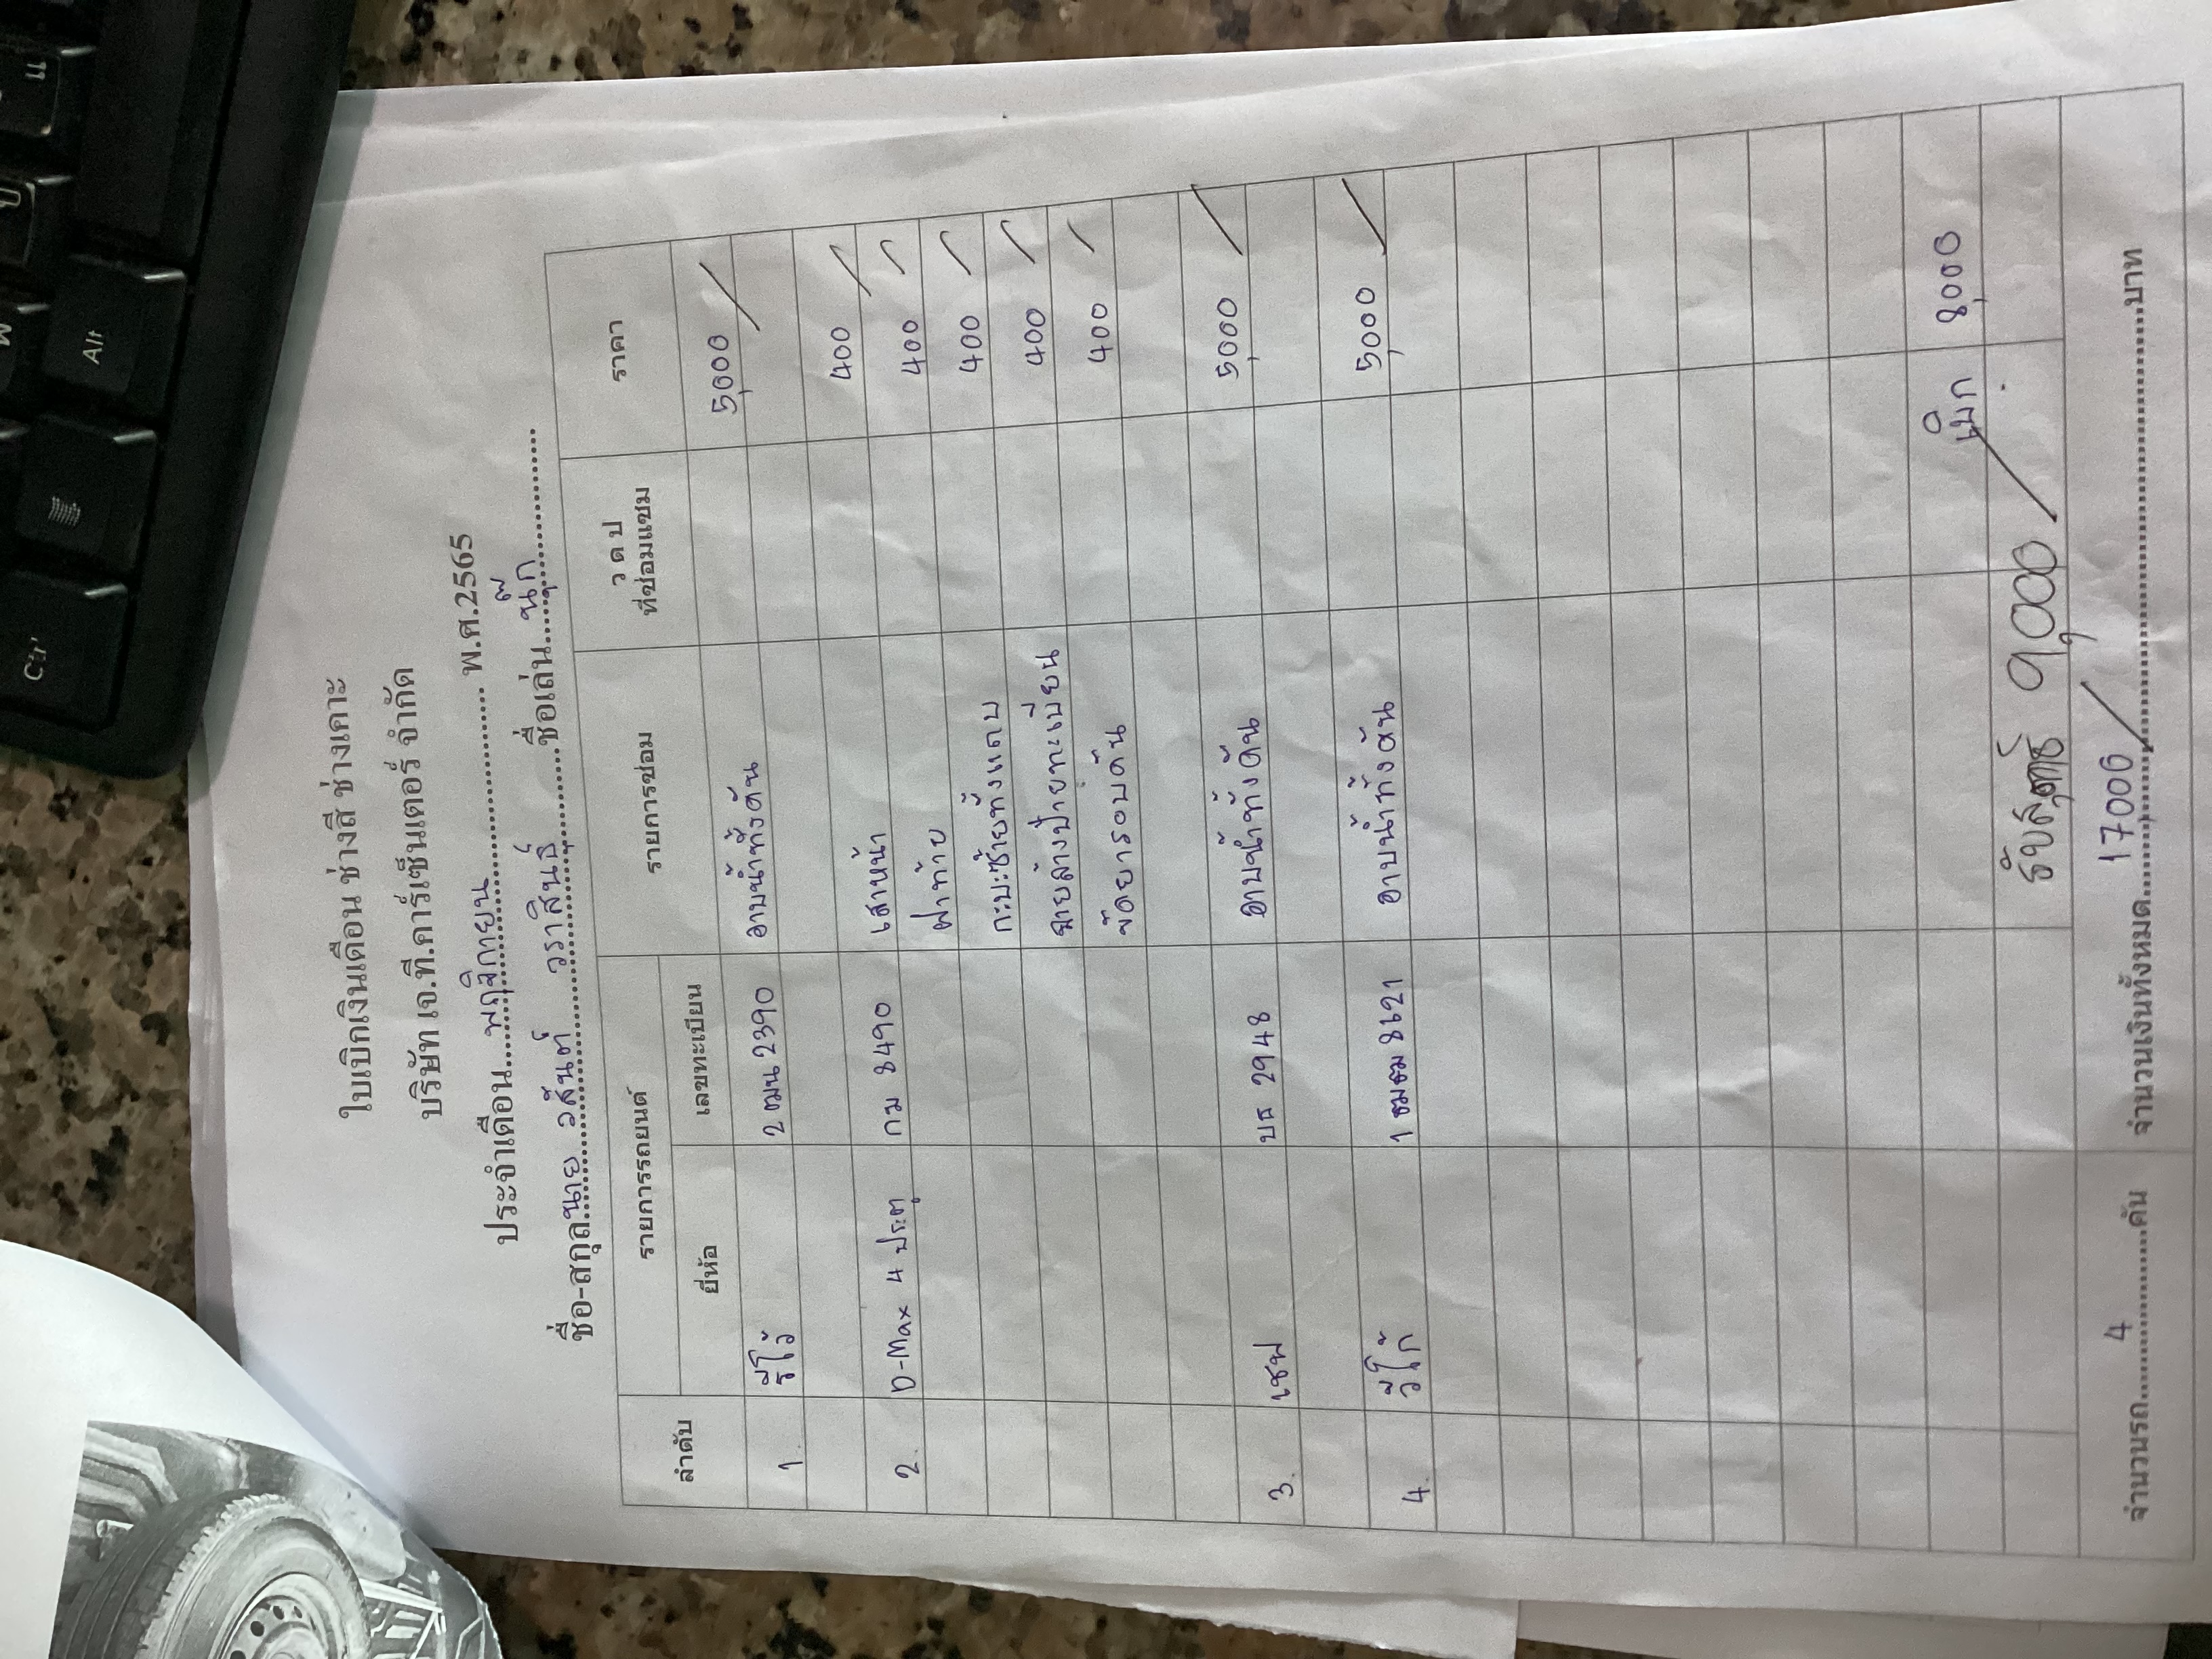 ใบเบิกเงินเดือน ช่างสี ช่างเคาะ
บริษัท เจ.ที.คาร์เซ็นเตอร์ จำกัด
ประจำเดือน....พฤศจิกายน.................... พ.ศ.2565
ชื่อ-สกุล..นาย วสันต์ วราสินธุ์..........ชื่อเล่น....นุ๊ก............
ลำดับ รายการรถยนต์ รายการซ่อม ว ด ป ราคา
ยี่ห้อ เลขทะเบียน ที่ซ่อมแซม
1. รีโว้ 2 ฒน 2390 อาบน้ำทั้งคัน 5,000
2. D-Max 4 ประตู กม 8490 เสาหน้า 400
ฝาท้าย 400
กะบะซ้ายทั้งแถบ 400
ชายล่างป้ายทะเบียน 400
ขัดยารอบคัน 400
3. เชฟ บธ 2948 อาบน้ำทั้งคัน 5,000
4. วีโก้ 1 ฒฒ 8621 อาบน้ำทั้งคัน 5,000
เบิก 8,000
รับสุทธิ 9,000
จำนวนรถ......4..........คัน จำนวนเงินทั้งหมด.....17000..............................บาท
Ctr
Alt